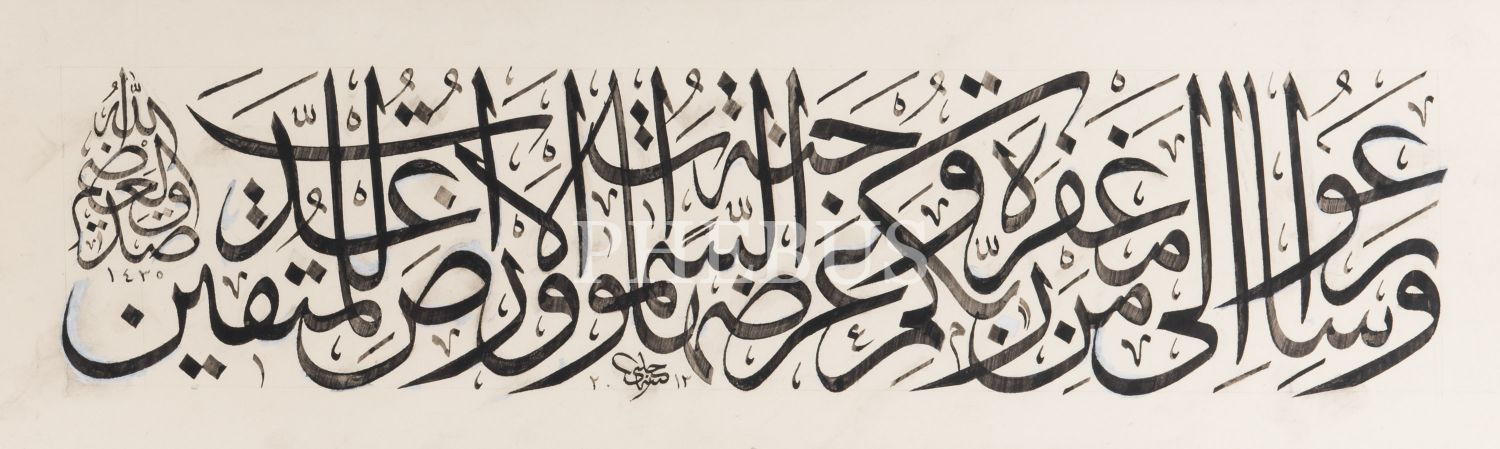 وَسَارِعُوا اِلٰى مَغْفِرَةٍ مِنْ رَبِّكُمْ وَجَنَّةٍ عَرْضُهَا السَّمٰوَاتُ وَالْاَرْضُ اُعِدَّتْ لِلْمُتَّقِينَ
صدق الله العظيم
١٤٣٥
PHEBUS